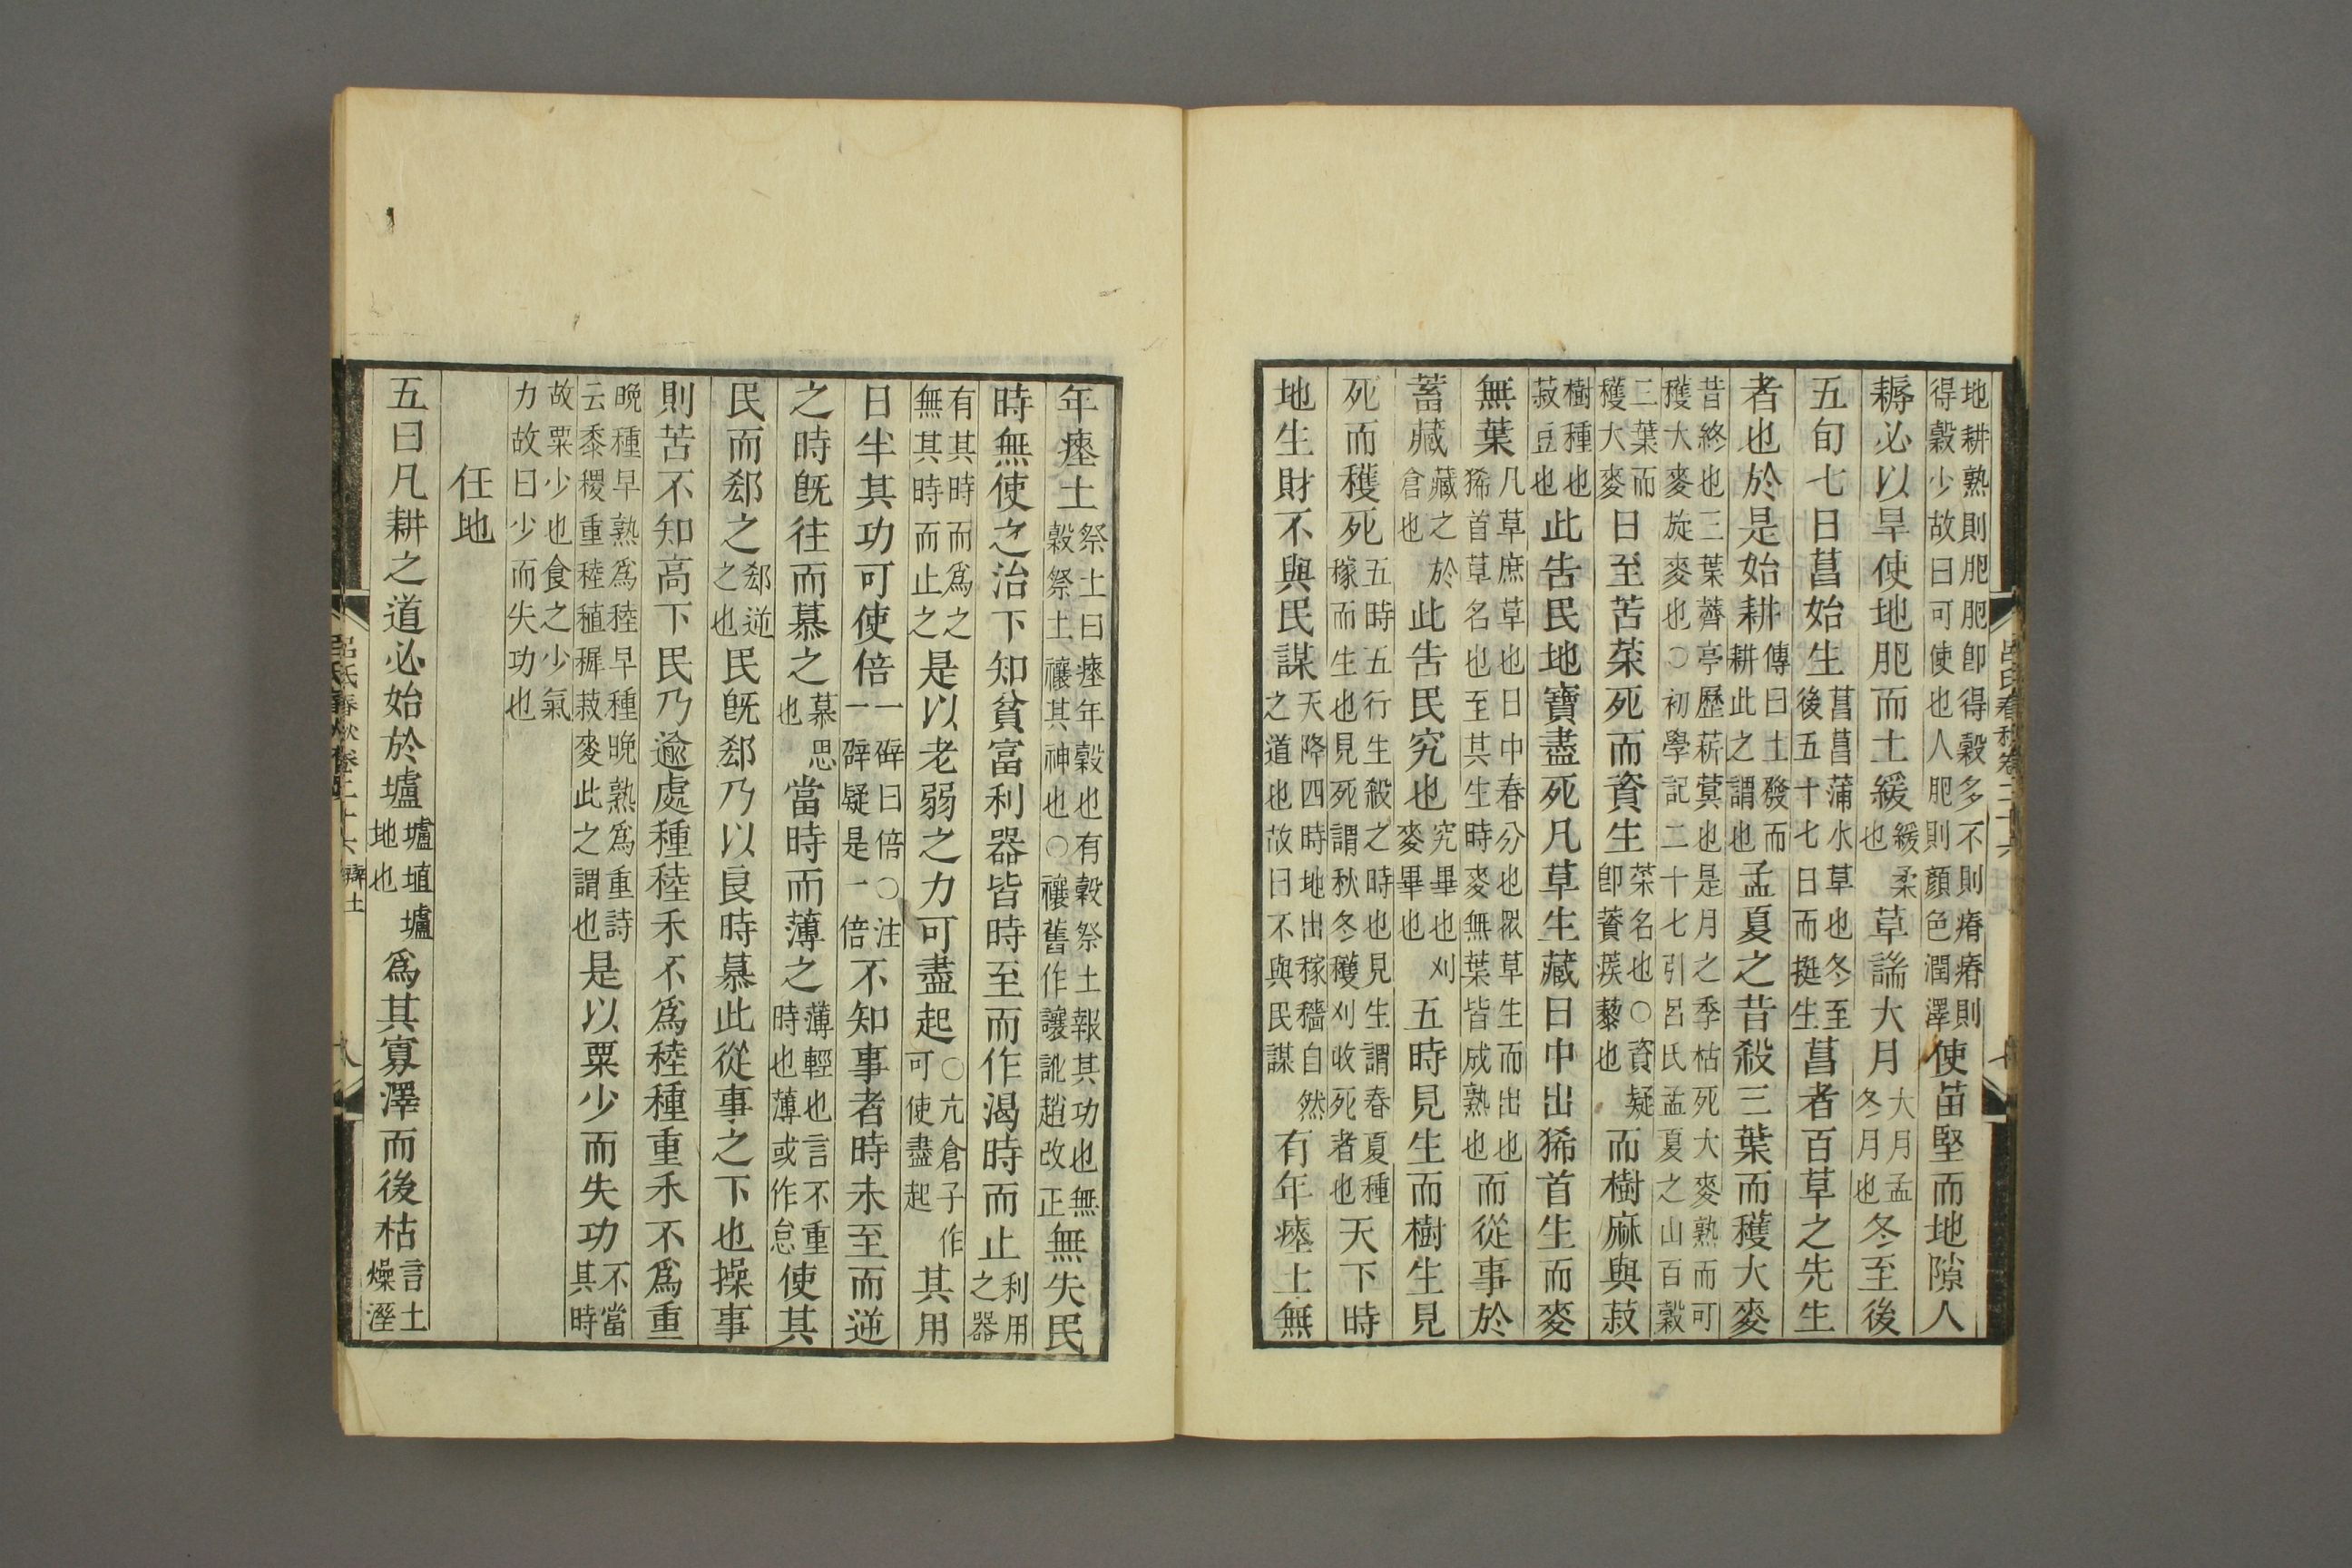 地耕熟則肥肥卽得穀多不則瘠瘠則得穀少故曰可使也人肥則顏色潤澤使苗堅而地隙人
耨必以旱使地肥而土緩緩柔也草諯大月大月孟冬月也冬至後
五旬七日菖始生菖菖蒲水草也冬至後五十七日而挺生菖者百草之先生
者也於是始耕傳曰土發而耕此之謂也孟夏之昔殺三葉而穫大麥
昔終也三葉薺亭歷菥蓂也是月之季枯死大麥熟而可穫大麥旋麥也○初學記二十七引呂氏孟夏之山百穀
三葉而穫大麥日至苦菜死而資生菜名也○資疑卽薋蒺藜也而樹麻與菽
樹種也菽豆也此告民地寶盡死凡草生藏日中出狶首生而麥
無葉凡草庶草也日中春分也衆草生而出也狶首草名也至其生時麥無葉皆成熟也而從事於
蓄藏藏之於倉也此告民究也究畢也刈麥畢也五時見生而樹生見
死而穫死五時五行生殺之時也見生謂春夏種稼而生也見死謂秋冬穫刈收死者也天下時
地生財不與民謀天降四時地出稼穡自然之道也故曰不與民謀有年瘞土無
年瘞土祭土曰瘞年穀也有穀祭土報其功也無穀祭土禳其神也○禳舊作讓訛趙改正無失民
時無使之治下知貧富利器皆時至而作渴時而止利用之器
有其時而爲之無其時而止之是以老弱之力可盡起○亢倉子作可使盡起其用
日半其功可使倍一僻曰倍○注一僻疑是一倍不知事者時未至而逆
之時旣往而慕之慕思也當時而薄之薄輕也言不重時也薄或作怠使其
民而郄之郄逆之也民旣郄乃以良時慕此從事之下也操事
則苦不知高下民乃逾處種稑禾不爲稑種重禾不爲重
晚種早熟爲稑早種晚熟爲重詩云黍稷重稑稙稺菽麥此之謂也是以粟少而失功不當其時
故粟少也食之少氣力故曰少而失功也
任地
五曰凡耕之道必始於壚壚埴壚地也爲其寡澤而後枯言土燥溼
呂氏春秋卷二十六
八